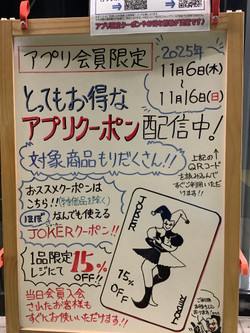 アプリ会員限定
2025年
11月6日(木)
〜
11月16日(日)
とってもお得な
アプリクーポン配信中!
対象商品もりだくさん!!
上記の
QRコード
を読み込んで
すぐご利用いただ
けます!!
おススメクーポンは
こちら!!
ほぼなんでも使える
JOKERクーポン!!
1品限定
レジにて15%OFF!!
JOKER
15%
OFF!!
JOKER
当日会員入会
されたお客様も
すぐにお使いいただけます!!